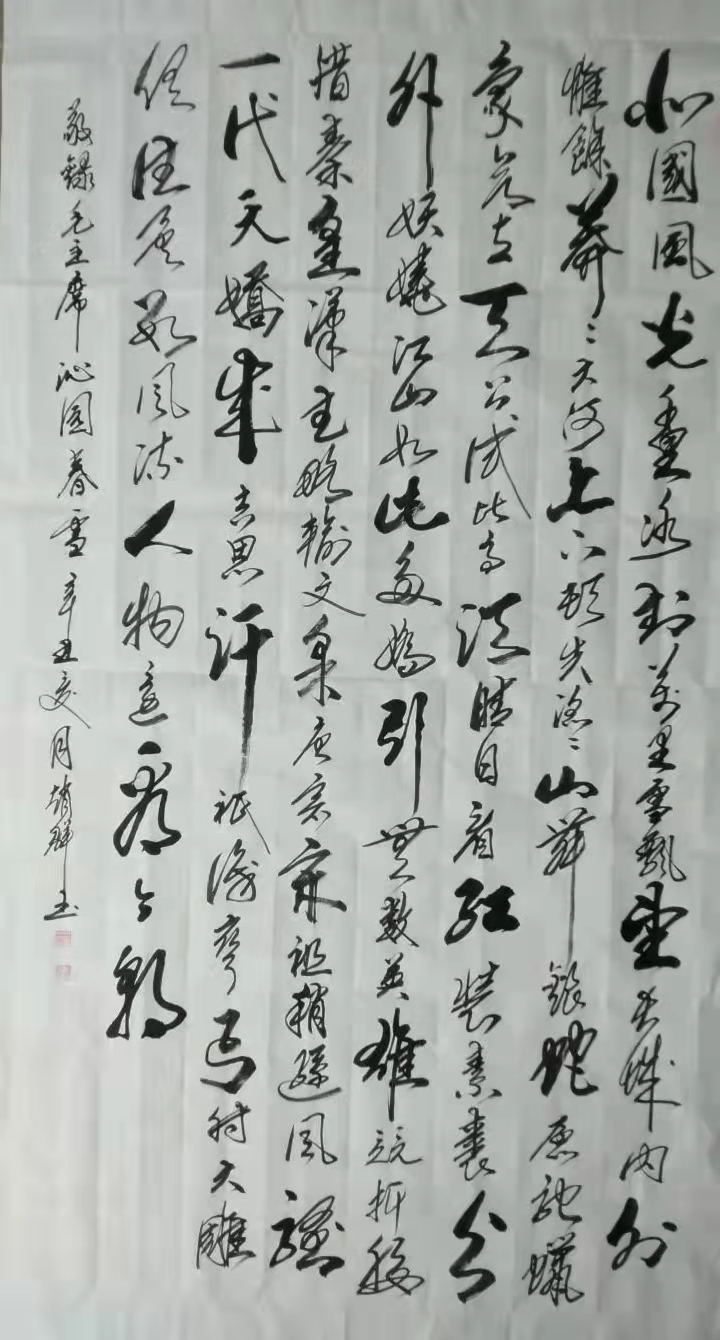 北國風光千里冰封萬里雪飄望長城內外
惟餘莽〻大河上下頓失滔〻山舞銀蛇原馳蠟
象欲与天公试比高須晴日看红裝素裹分
外妖嬈江山如此多嬌引無數英雄競折腰
惜秦皇漢武略輸文采唐宗宋祖稍遜風騷
一代天嬌成吉思汗祇識彎弓射大雕
俱往矣數風流人物還看今朝
敬錄毛主席沁園春雪辛丑夏月